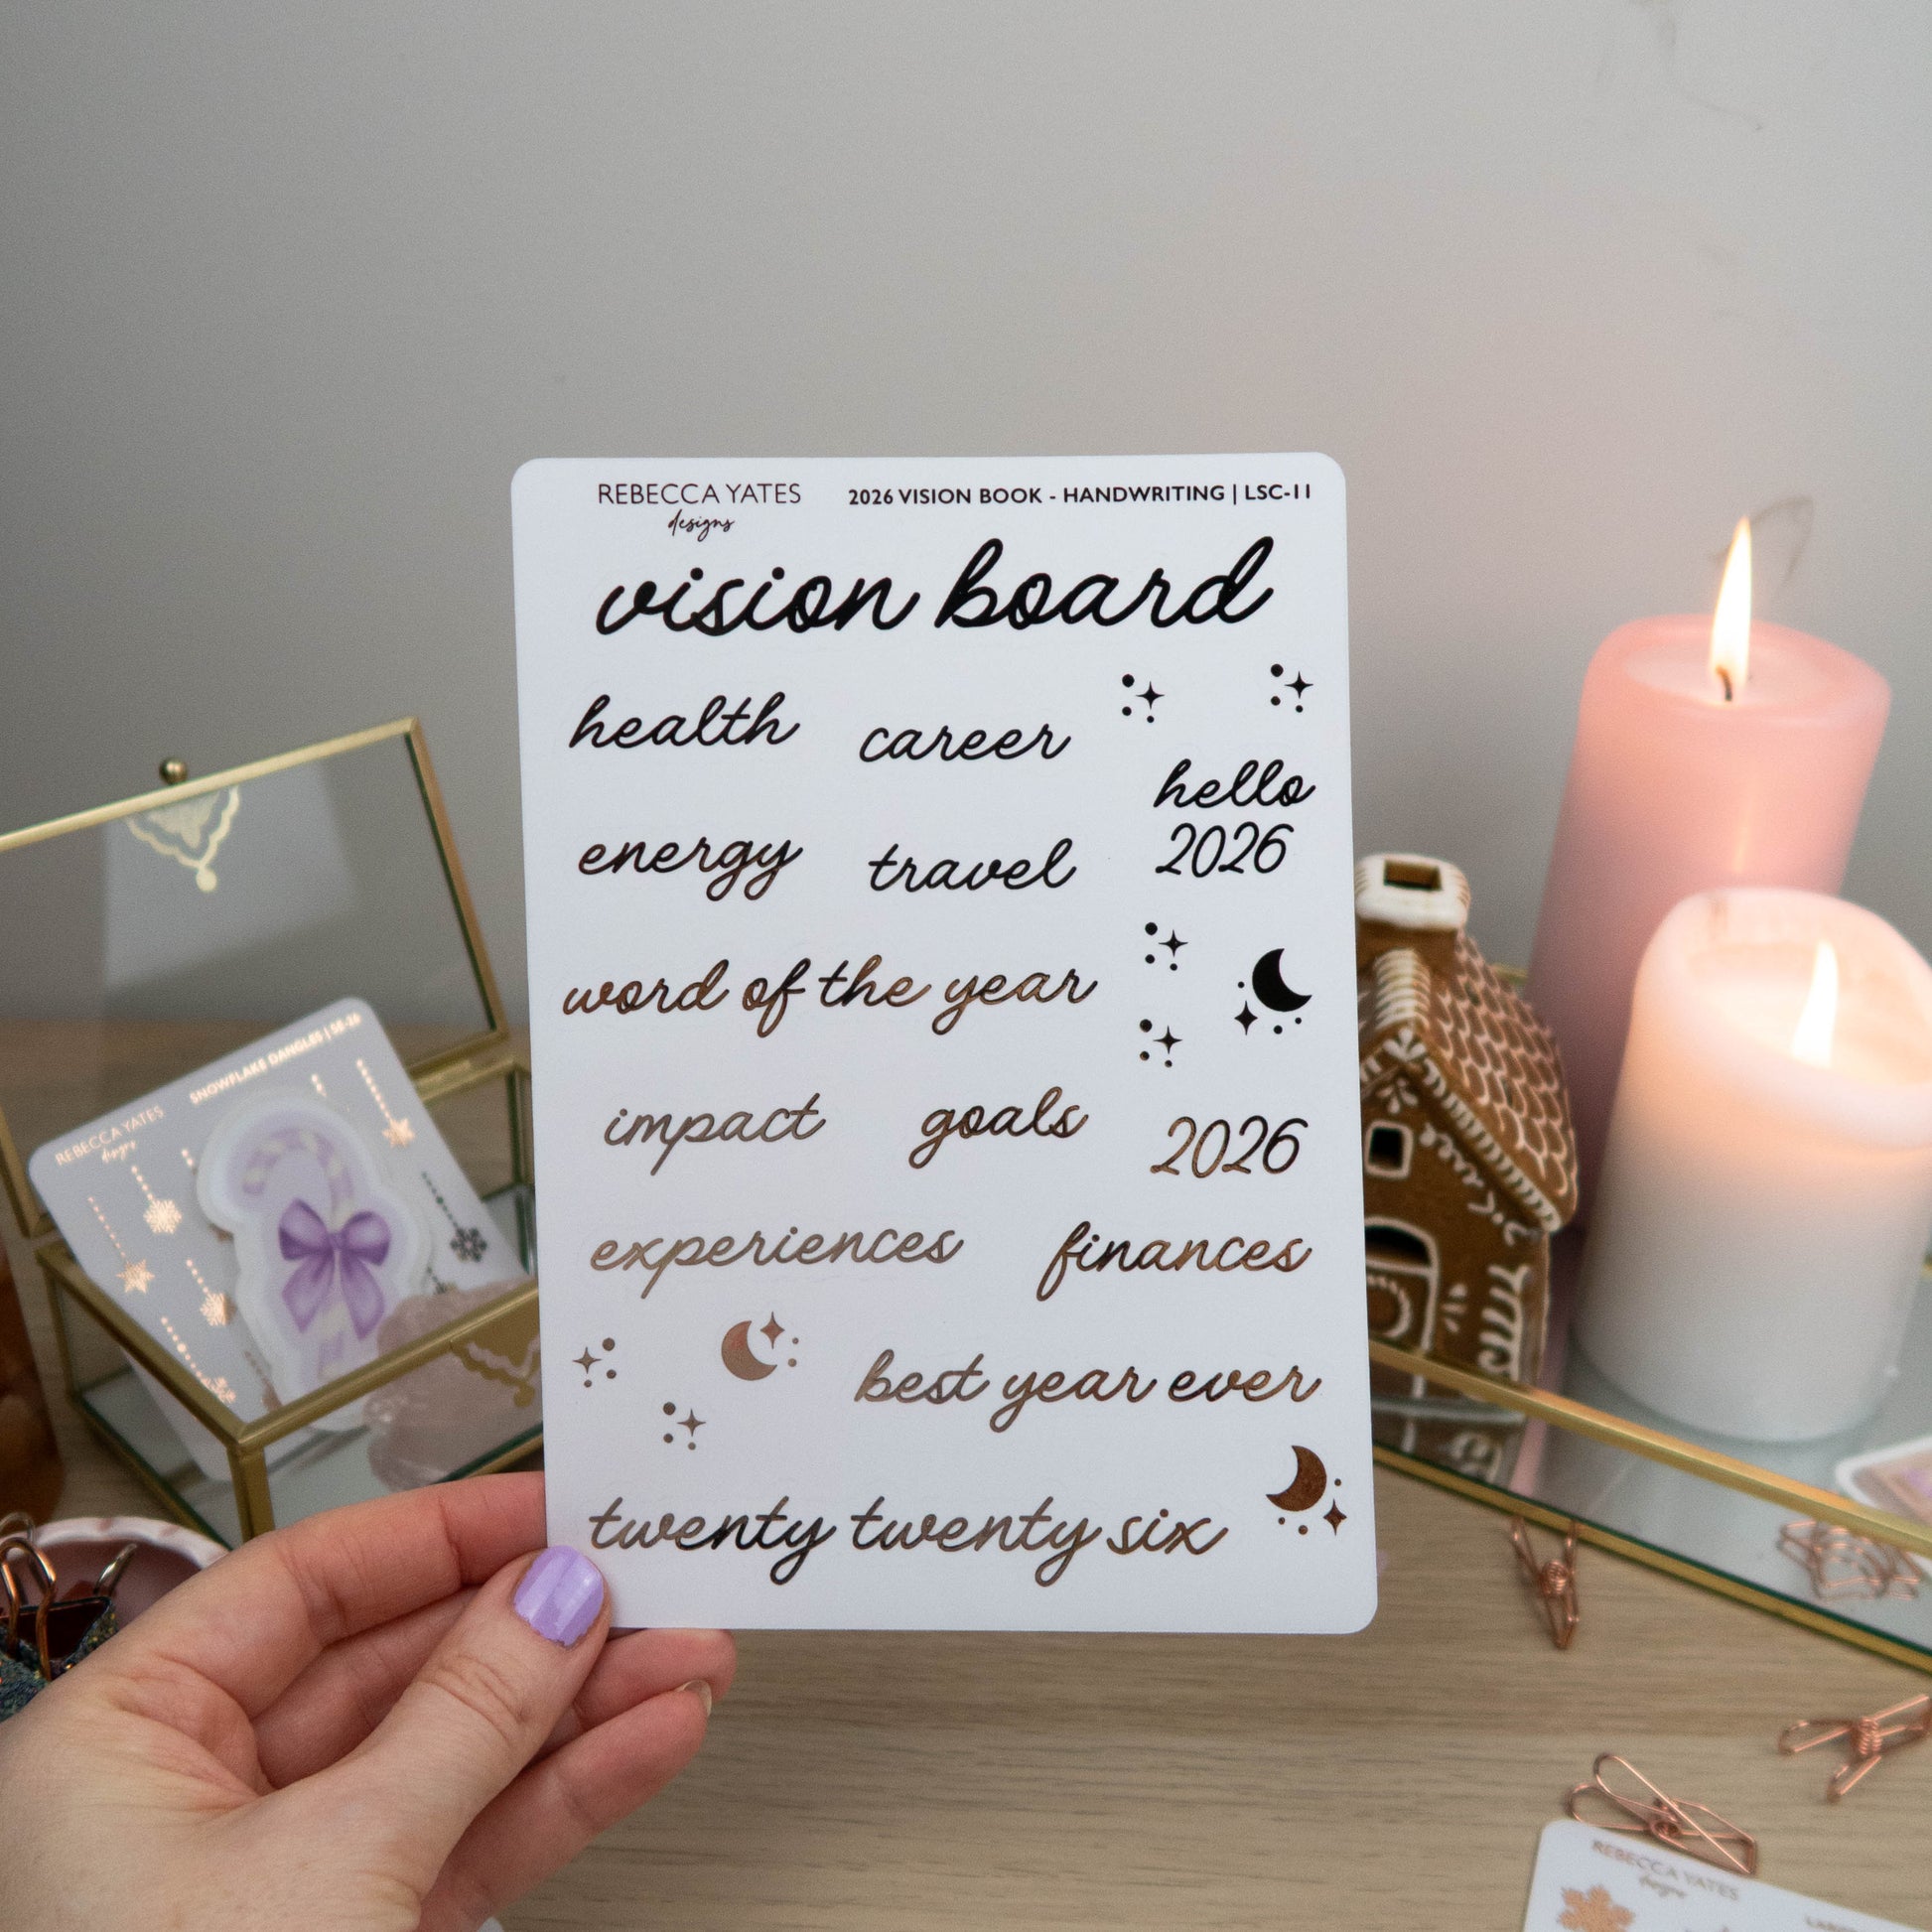 REBECCA YATES
designs
2026 VISION BOOK - HANDWRITING | LSC-11
vision board
health
career
hello
2026
energy
travel
word of the year
impact
goals
2026
experiences
finances
best year ever
twenty twenty six
REBECCA YATES
designs
SNOWFLAKE DANGLES | SE-26
REBECCA YATES
designs